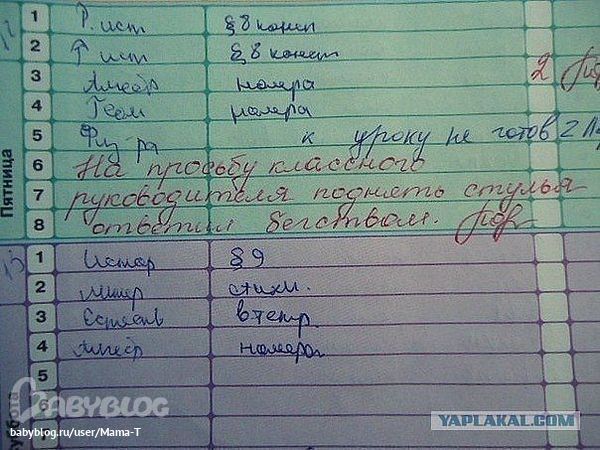 12
1 Р. ист § 8 консп
2 ↑ ист § 8 консп
3 Алгебр номера 2
4 Геом номера
5 Физ-ра к уроку не готов 2
Пятница
6 На просьбу классного
7 руководителя поднять стулья
8 ответил бегством.
13
1 Истор § 9
2 Литер стихи.
3 Естеств в тетр.
4 Алгебр номера
5
6
7
8
Суббота
BABYBLOG
babyblog.ru/user/Mama-T
YAPLAKAL.COM